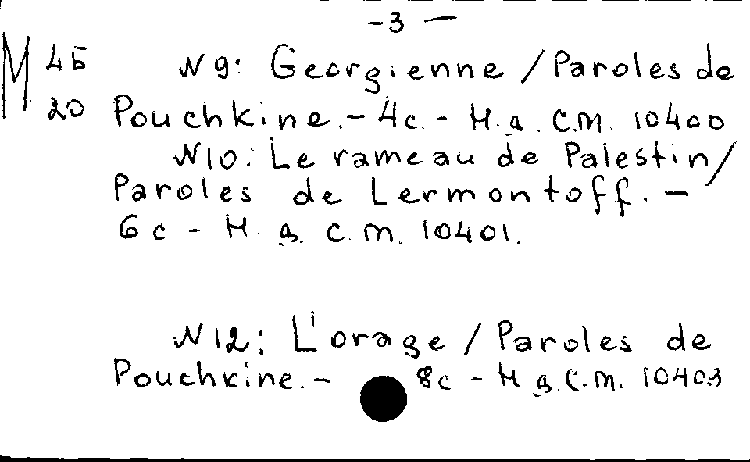 -3-
М 45 № 9: Georgienne / Paroles de
20 Pouchkine.- 4с. - Н.д. С.М. 10400
№ 10: Le rameau de Palestin/
Paroles de Lermontoff. -
6с - Н.д. С.М. 10401.
№ 12: L'orage / Paroles de
Pouchkine. - 8с - Н.д. С.М. 10403